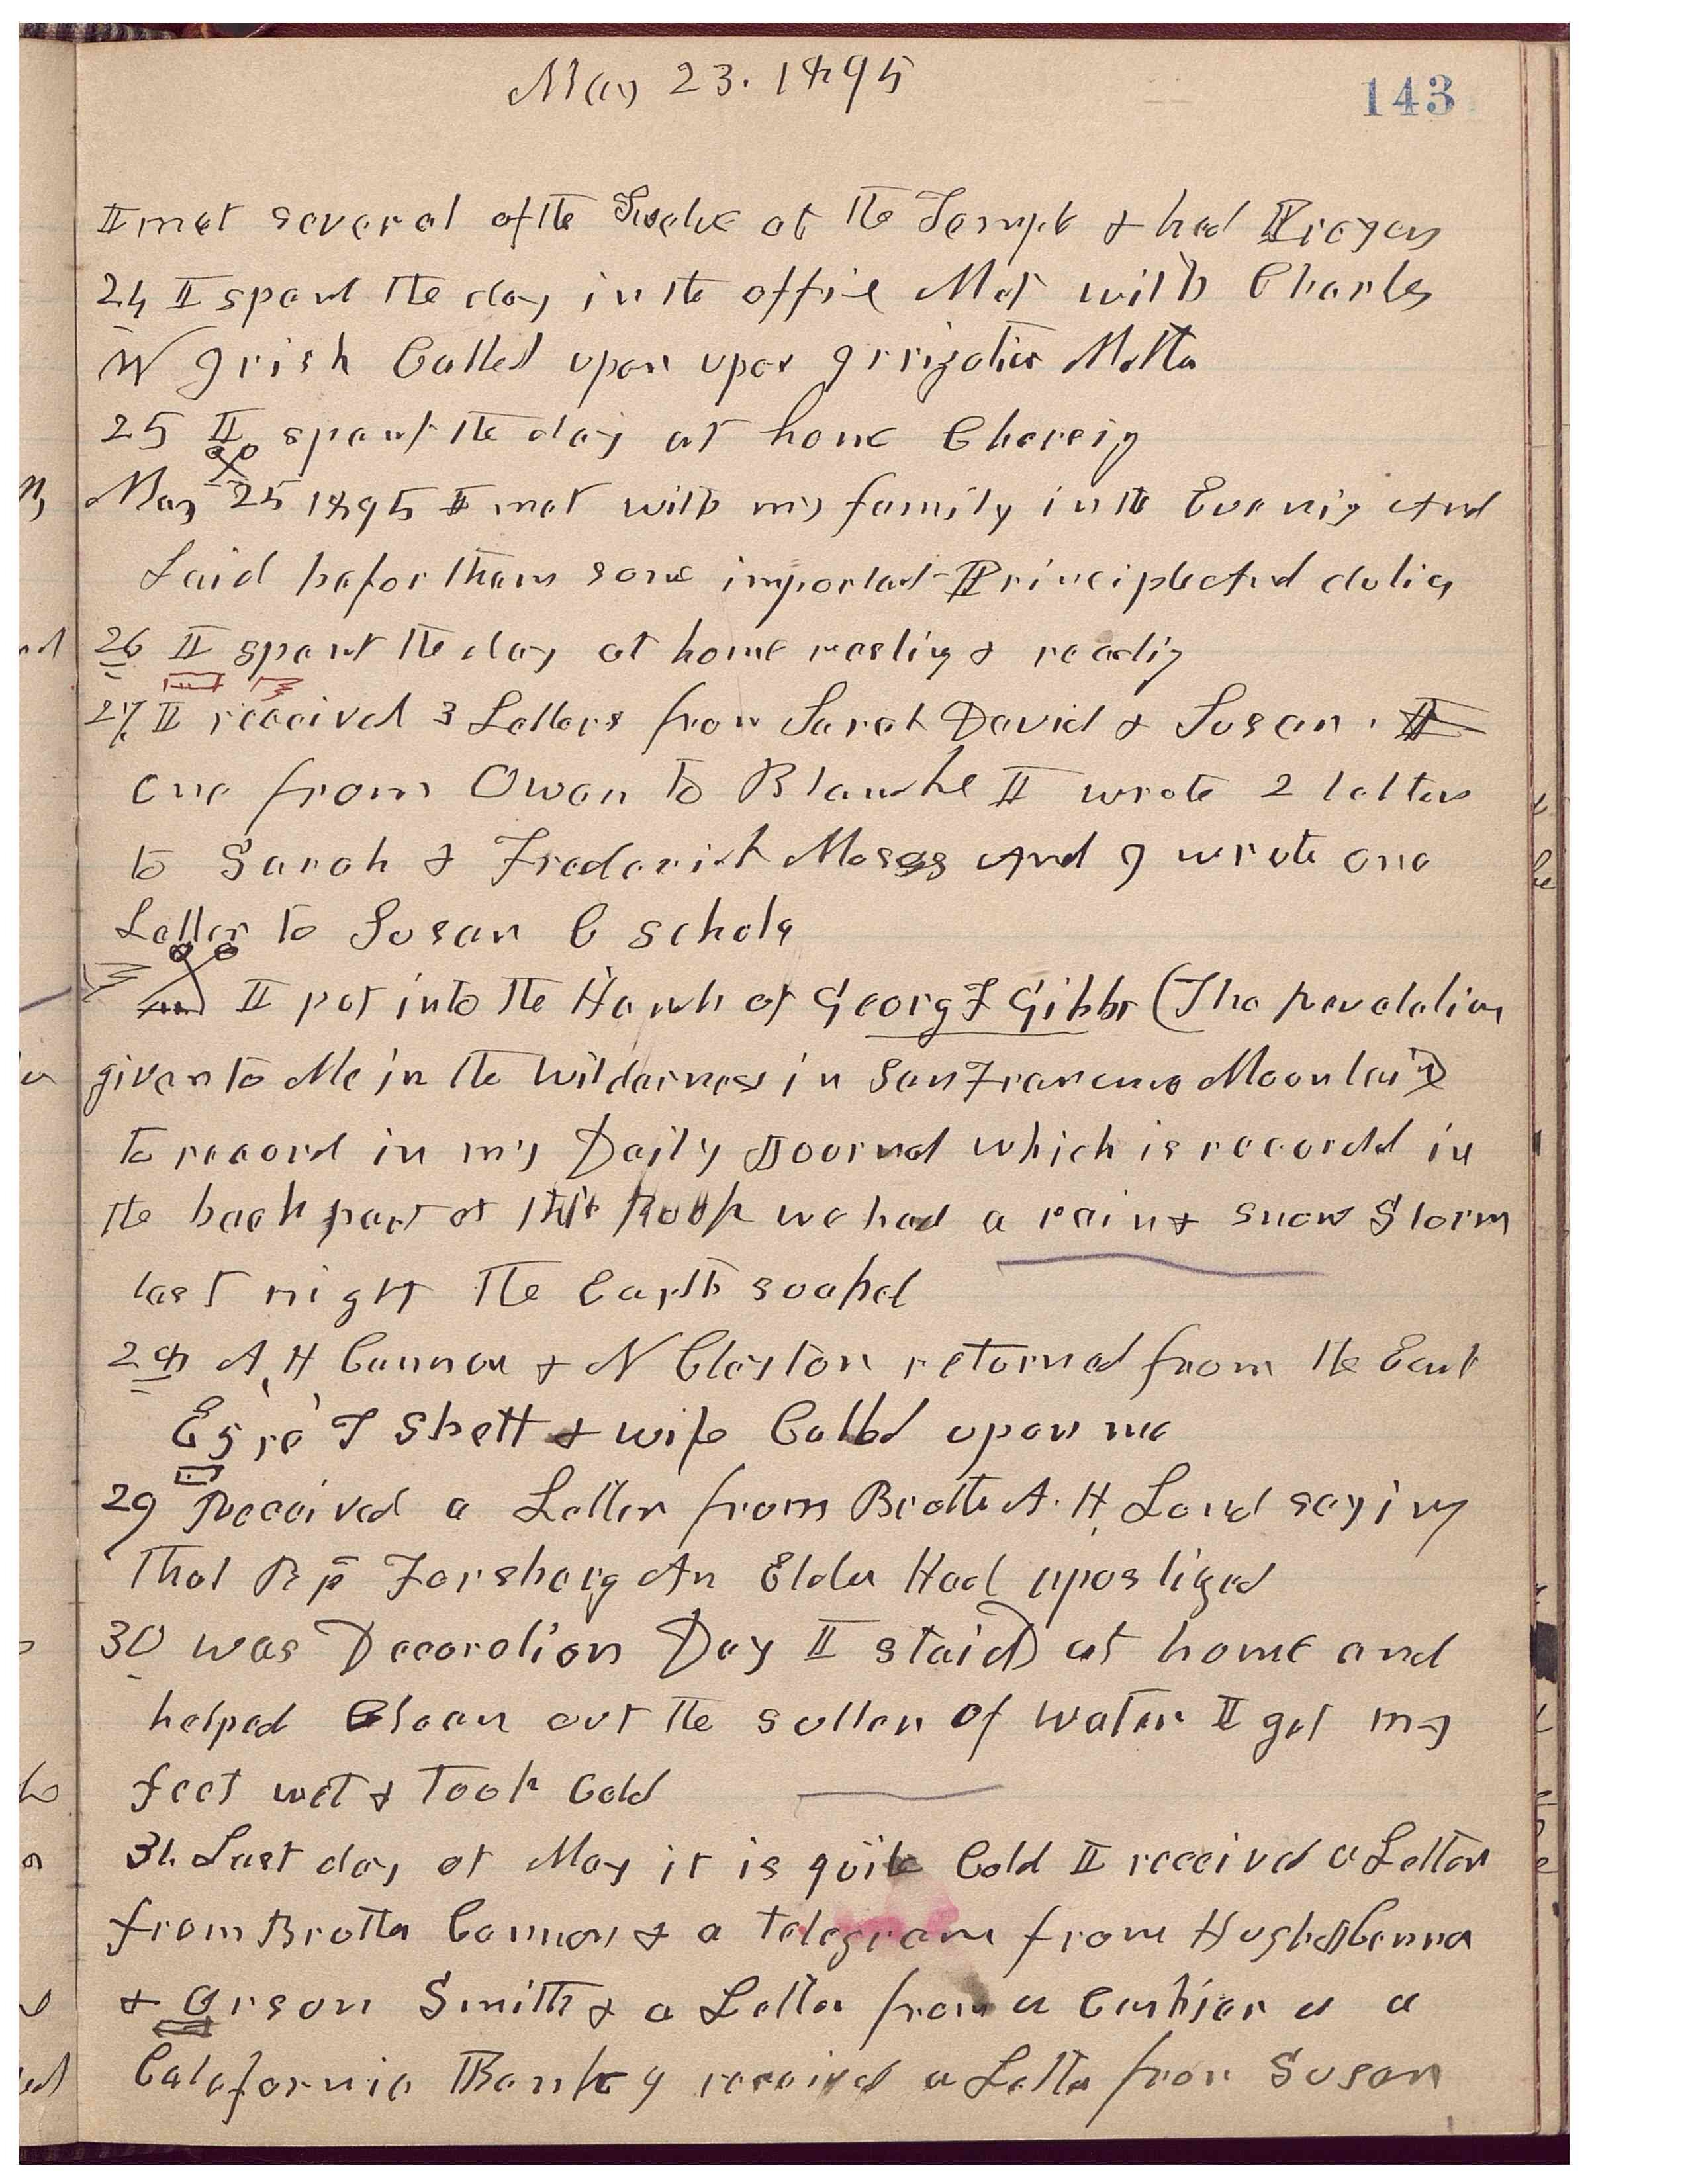 May 23. 1895
143
I met several of the Twelve at the Temple & had Prayers
24 I spent the day in the office Met with Charles
W Irish Called upon upon Irrigation Matter
25 I spent the day at home Choreing
May 25 1895 I met with my family in the Evening And
Laid befor them some important Principle And duties
26 I spent the day at home resting & reading
27 I received 3 Letters from Sarah David & Susan. I
one from Owen to Blanche I wrote 2 letters
to Sarah & Frederick Moses And I wrote one
Letter to Susan C schols
I put into the Hands of Georg F Gibbs (The Revelation
given to Me in the Wilderness in San Francisco Mountain)
to record in my Daily Journal which is recordd in
the back part of this Book we had a rain & snow Storm
last night the Earth soaked
28 A, H Cannon & N Clayton returned from the East
Ezra T Shett & wife Called upon me
29 Received a Letter from Brother A. H. Lund saying
that Forsberg An Elder Had apostized
30 was Decoration Day I staid at home and
helped Clean out the sullen of water I got my
feet wet & Took Cold
31. Last day of May it is quite Cold I received a Letter
from Brother Cannon & a telegram from Hugh J Cannon
& Orson Smith & a Letter from a Cashier a a
Calafornia Bank I received a Letter from Susan